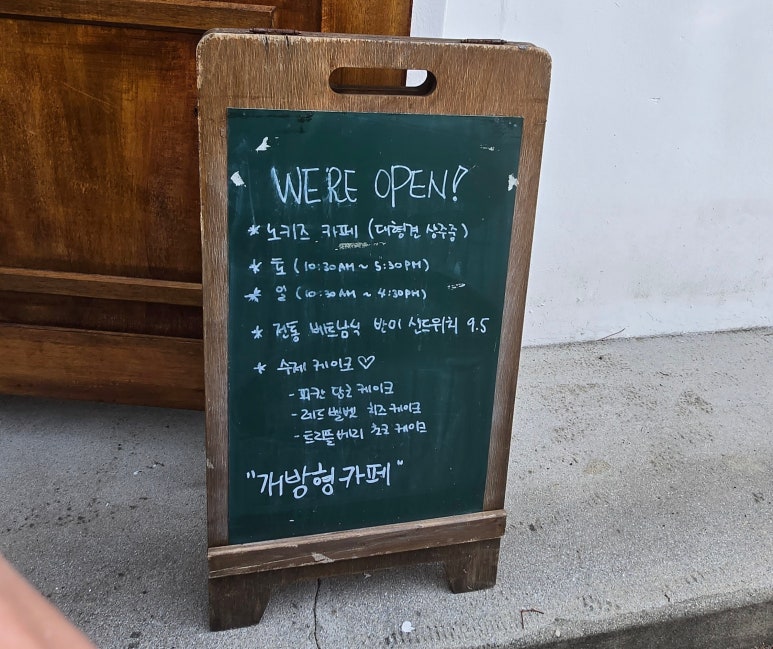 WE'RE OPEN!
* 노키즈 카페 (대형견 상주중)
* 토 (10:30AM ~ 5:30PM)
* 일 (10:30AM ~ 4:30PM)
* 전통 베트남식 반미 샌드위치 9.5
* 수제 케이크 ♡
- 피칸 당근 케이크
- 레드벨벳 치즈케이크
- 트리플베리 초코 케이크
"개방형 카페"